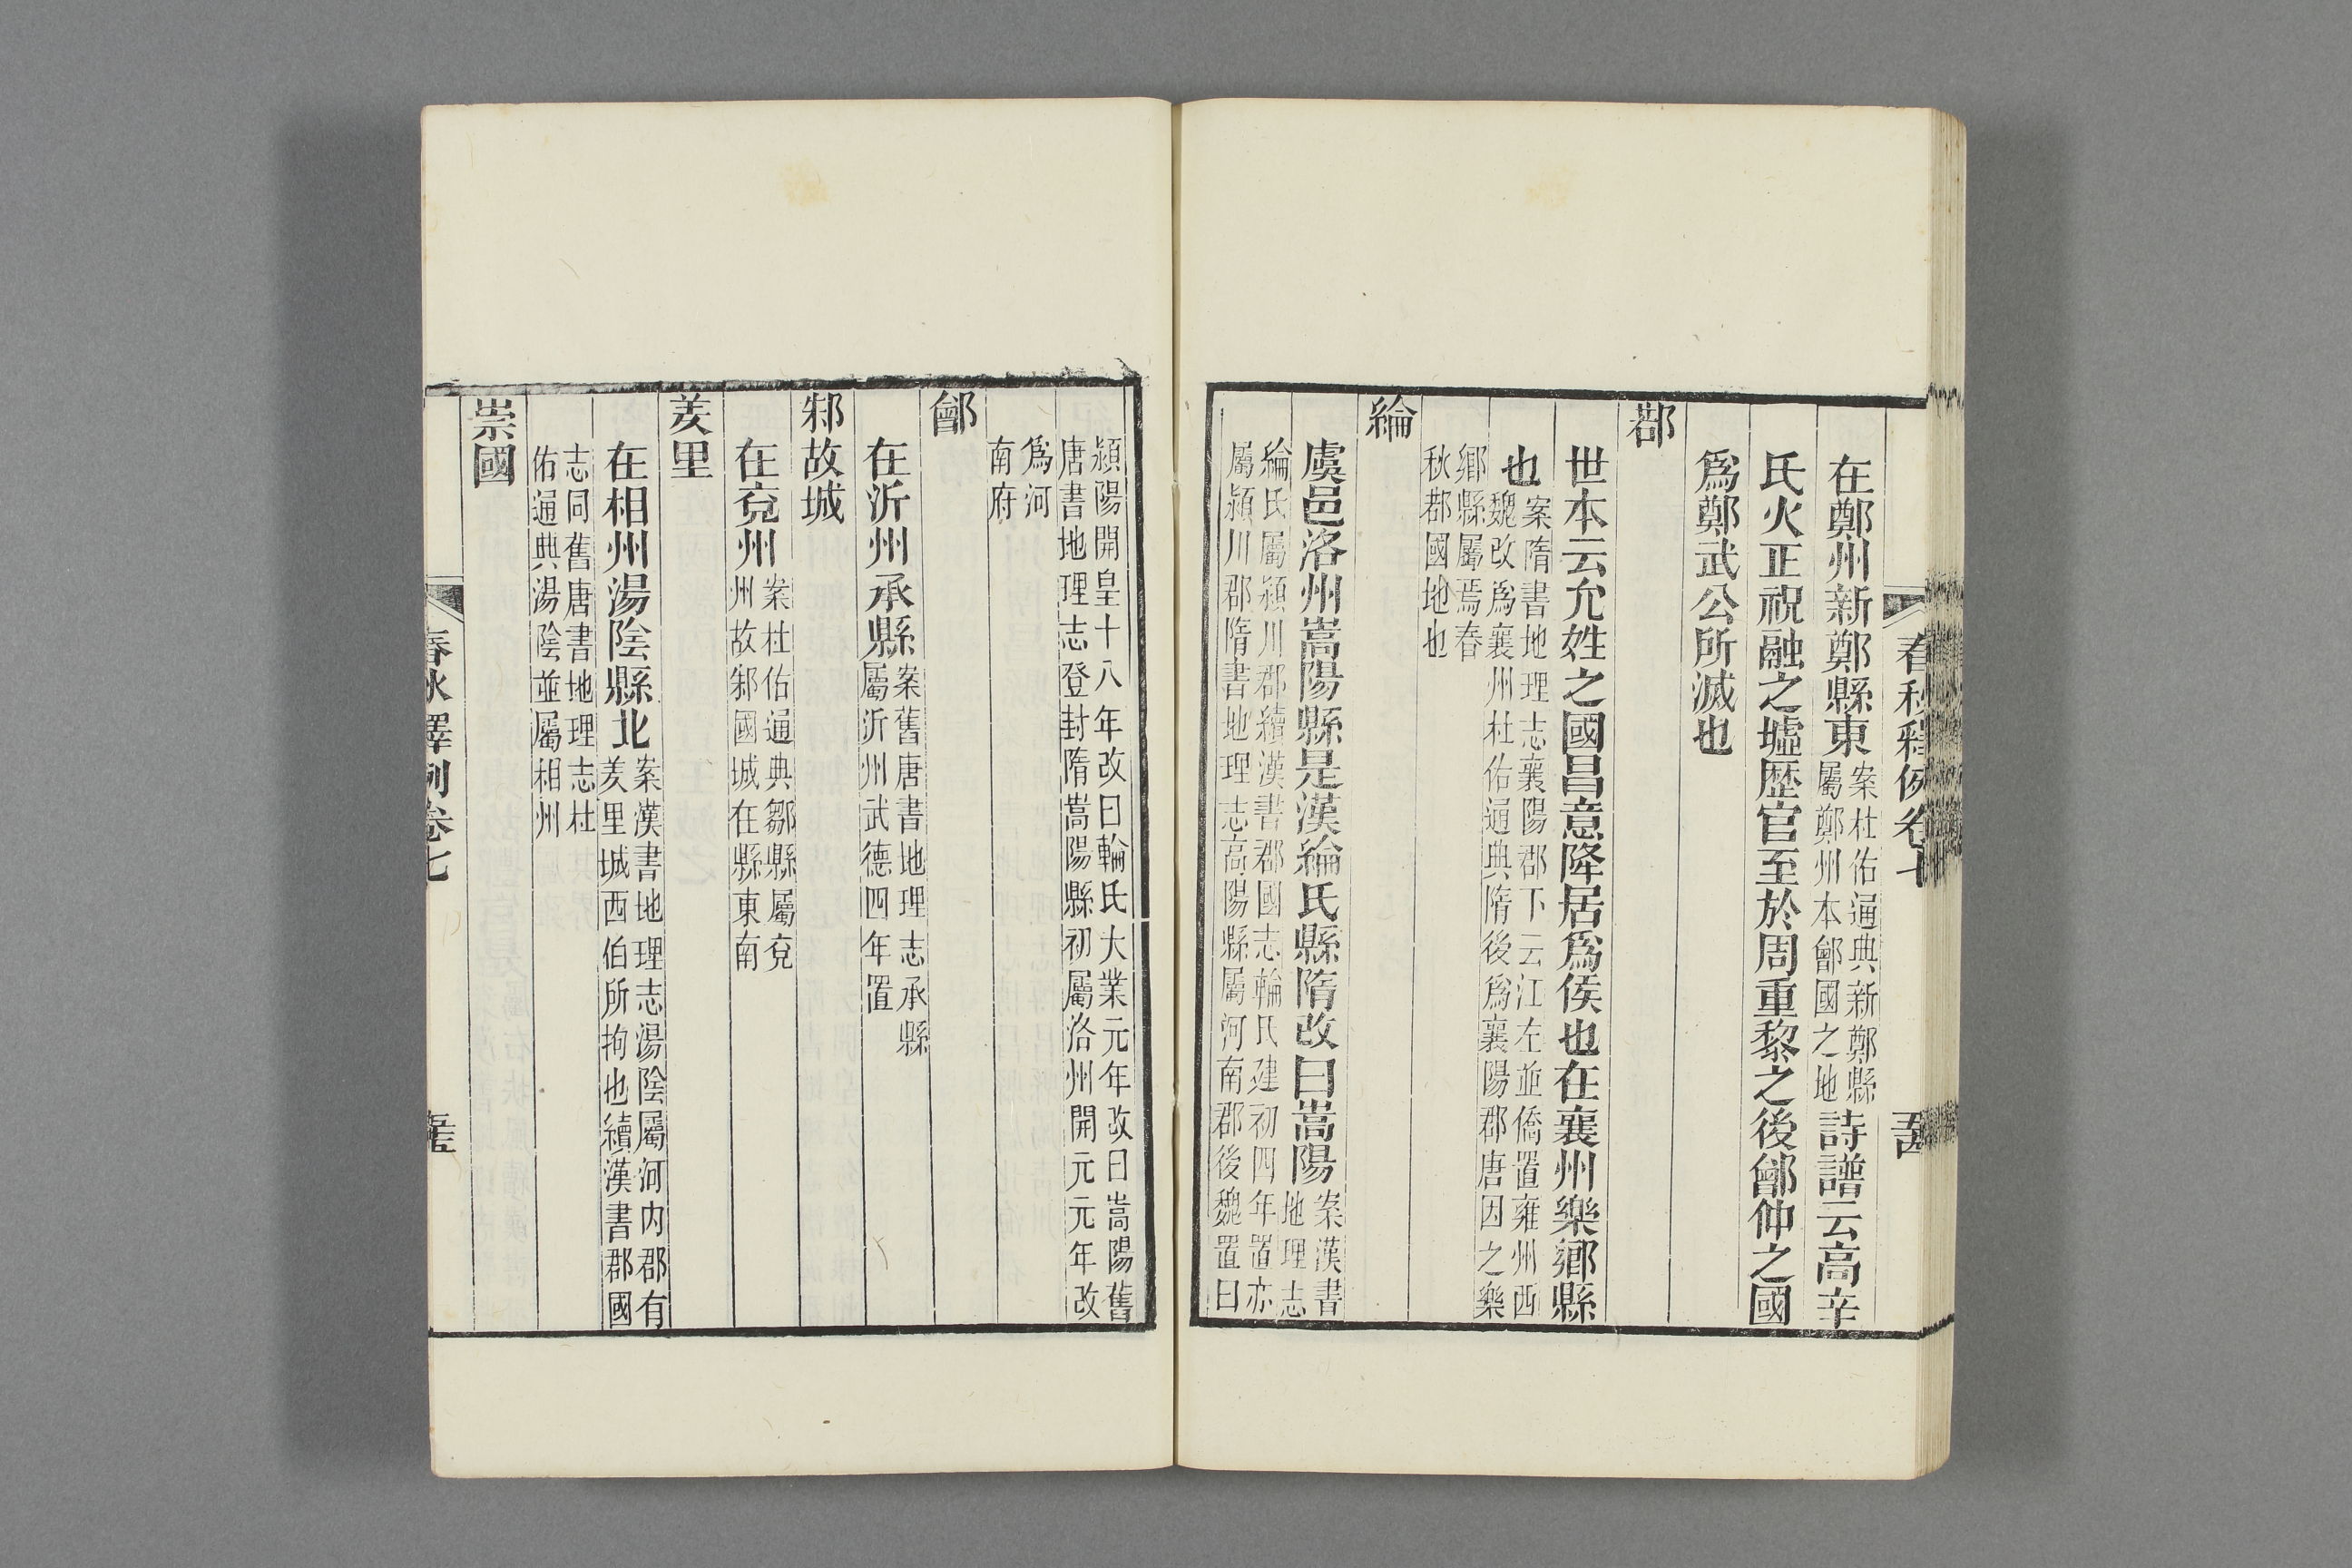 春秋釋例卷七
在鄭州新鄭縣東案杜佑通典新鄭縣屬鄭州本鄶國之地詩譜云高辛
氏火正祝融之墟歷官至於周重黎之後鄶仲之國
爲鄭武公所滅也
鄀
世本云允姓之國昌意降居爲侯也在襄州樂鄉縣
也案隋書地理志襄陽郡下云江左並僑置雍州西魏改爲襄州杜佑通典隋後爲襄陽郡唐因之樂
鄉縣屬焉春秋鄀國地也
綸
虞邑洛州嵩陽縣是漢綸氏縣隋改曰嵩陽案漢書地理志
綸氏屬潁川郡續漢書郡國志輪氏建初四年置亦屬潁川郡隋書地理志嵩陽縣屬河南郡後魏置曰
潁陽開皇十八年改曰輪氏大業元年改曰嵩陽舊唐書地理志登封隋嵩陽縣初屬洛州開元元年改
爲河南府
鄶
在沂州承縣案舊唐書地理志承縣屬沂州武德四年置
邾故城
在兗州案杜佑通典鄒縣屬兗州故邾國城在縣東南
羑里
在相州湯陰縣北案漢書地理志湯陰屬河內郡有羑里城西伯所拘也續漢書郡國
志同舊唐書地理志杜佑通典湯陰並屬相州
崇國
春秋釋例卷七